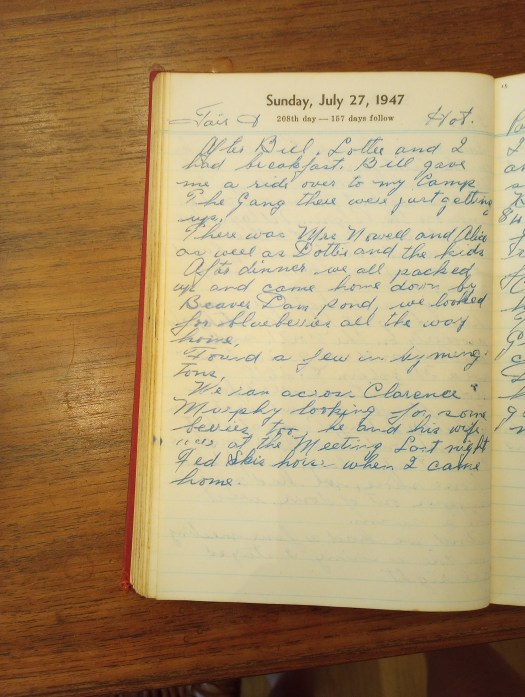 Sunday, July 27, 1947
208th day — 157 days follow
Fair & Hot.
After Bill, Lottie and I
had breakfast. Bill gave
me a ride over to my Camp
The Gang there were just getting
up.
There was Mrs Nowell and Alice
as well as Lottie and the kids
After dinner we all packed
up and came home down by
Beaver Dam pond, we looked
for blueberries all the way
home.
Found a few in by ming
tons.
We ran across Clarence
Murphy looking for some
berries too, he and his wife
was at the Meeting Last night
Fed horse when I came
home.